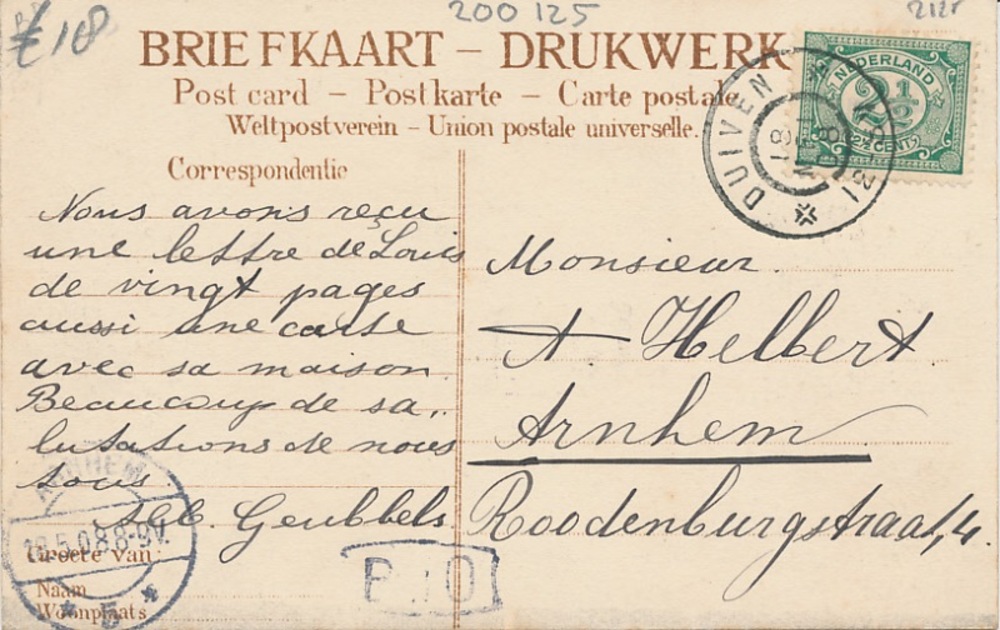 €18
200125
2125
BRIEFKAART – DRUKWERK
Post card – Postkarte – Carte postale
Weltpostverein – Union postale universelle.
NEDERLAND
2½
2½ CENT
DUIVEN
Correspondentie
Nous avons reçu
une lettre de Louis
de vingt pages
aussi une carte
avec sa maison.
Beaucoup de sa„
lutations de nous
tous
Geubbels.
Monsieur.
A Helbert
Arnhem.
Roodenburgstraat, 4.
ARNHEM
5.08.8-9V.
Groete van:
Naam
Woonplaats
5